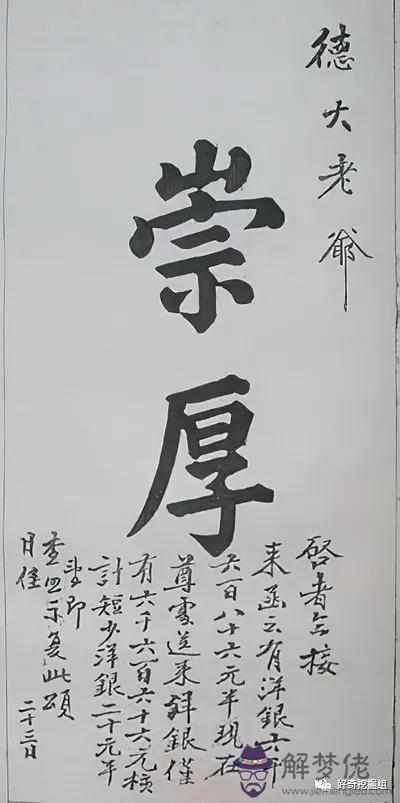 德大老爺
崇厚
啓者今接
来函云有洋銀六千
六百八十六元半現在
尊處送来洋銀僅
有六千六百六十六元核
計短少洋銀二十元半
即
查照示复此頌
月佳
二十三日
解梦佬
www.jiemenglao.com
好奇挖掘组